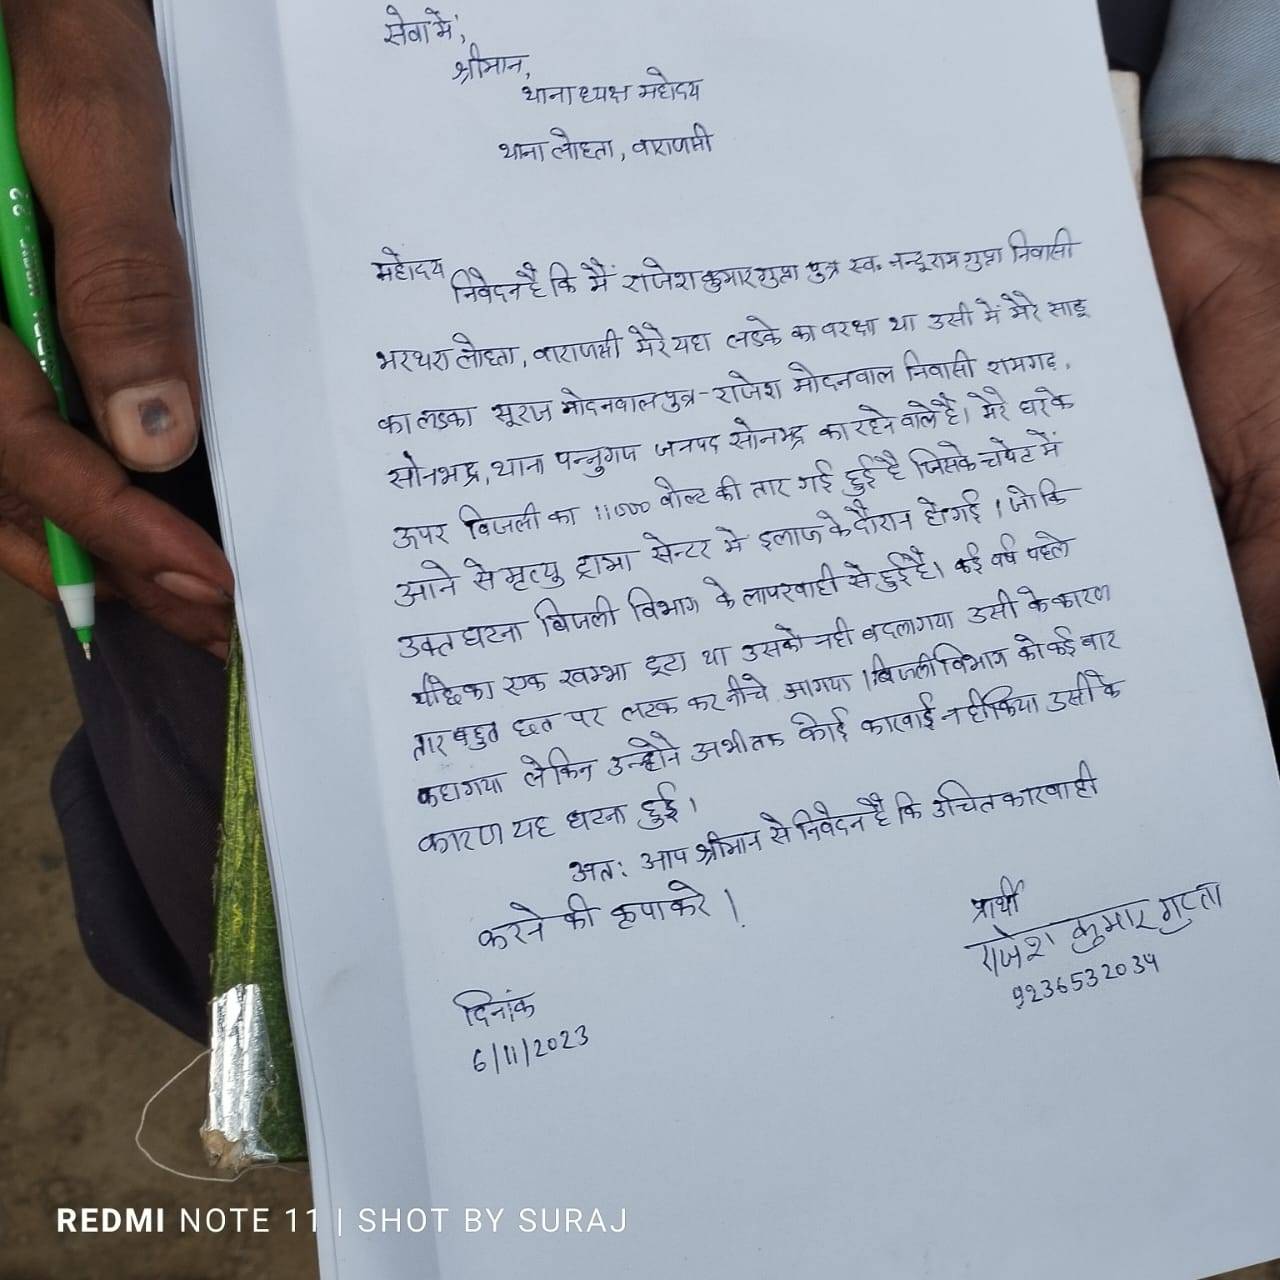 सेवा में,
श्रीमान,
थानाध्यक्ष महोदय
थाना लोहता, वाराणसी
महोदय
निवेदन है कि मैं राजेश कुमार गुप्ता पुत्र स्व. नन्दूराम गुप्ता निवासी
भरथरा लोहता, वाराणसी मेरे यहा लडके का वरक्षा था उसी में मेरे साढू
का लडका सूरज मोदनवाल पुत्र - राजेश मोदनवाल निवासी रामगढ़,
सोनभद्र, थाना पन्नुगंज जनपद सोनभद्र का रहने वाले है। मेरे घर के
ऊपर बिजली का 11000 वोल्ट की तार गई हुई है जिसके चपेट में
आने से मृत्यु ट्रामा सेन्टर मे इलाज के दौरान हो गई। जो कि
उक्त घटना बिजली विभाग के लापरवाही से हुई है। कई वर्ष पहले
एक खम्भा टूटा था उसको नही बदला गया उसी के कारण
तार बहुत छत पर लटक कर नीचे आ गया। बिजली विभाग को कई बार
कहा गया लेकिन उन्होने अभी तक कोई कारवाई नही किया उसी के
कारण यह घटना हुई।
अतः आप श्रीमान से निवेदन है कि उचित कारवाही
करने की कृपा करे।
प्रार्थी
राजेश कुमार गुप्ता
9236532034
दिनांक
6/11/2023
REDMI NOTE 11 | SHOT BY SURAJ